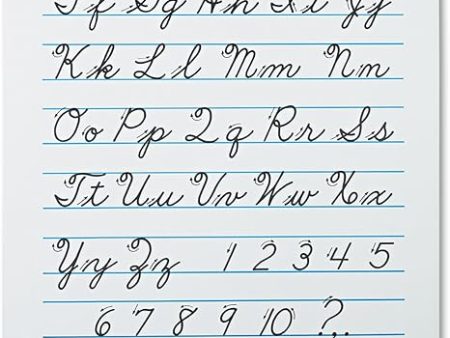 Ff Gg Hh Ii Jj
Kk Ll Mm Nn
Oo Pp Qq Rr Ss
Tt Uu Vv Ww Xx
Yy Zz 1 2 3 4 5
6 7 8 9 10 ? , .